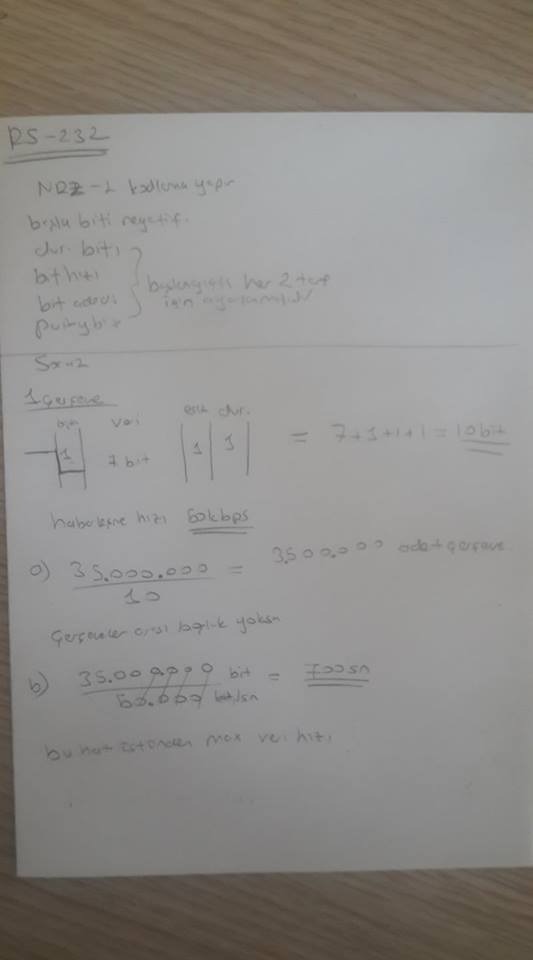 RS-232
NRZ-L kodlama yapır
başla biti negatif.
dur. biti
bit hızı
bit adedi
parity bit
başlangıçta her 2 taraf
için ayarlanmalıdır
Soru-2
1 çerçeve
başla veri eşlik dur.
1 7 bit 1 1 = 7+1+1+1=10bit
haberleşme hızı 50kbps
a) 35.000.000 / 10 = 3500.000 adet çerçeve
Çerçeveler arası boşluk yoksa
b) 35.000.000 bit / 50.000 bit/sn = 700sn
bu hat üstünden max veri hızı